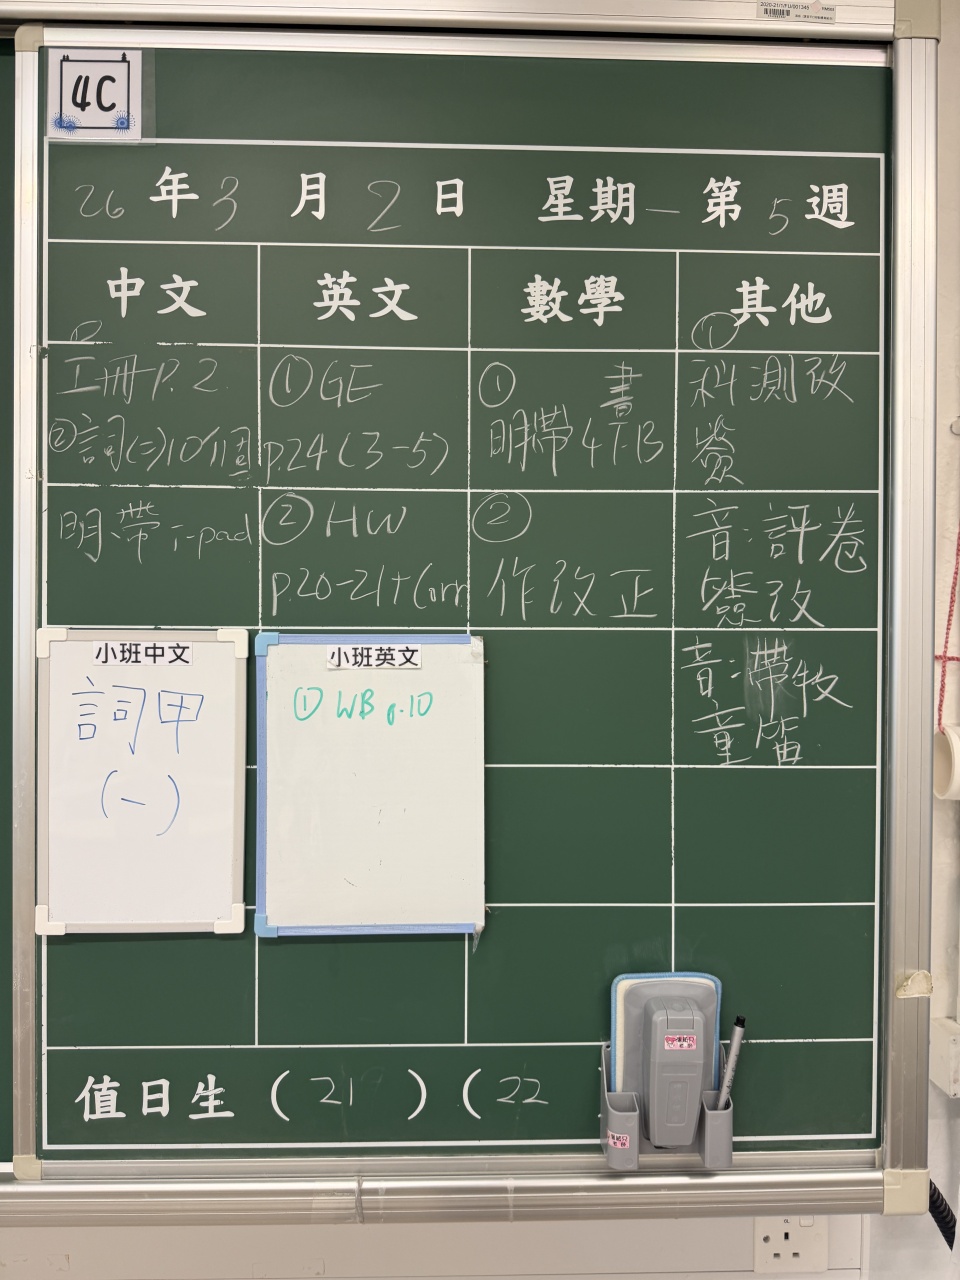 4C
26年3月2日 星期一 第5週
中文 英文 數學 其他
工冊P.2
②詞(二)10個
明帶i-pad
①GE
p.24(3-5)
②HW
p.20-21+Corr
①書
明帶4下B
②
作改正
①
科測改
簽
音:評卷
簽改
音:帶牧
童笛
小班中文
詞甲
(一)
小班英文
① WB p.10
值日生(21)(22